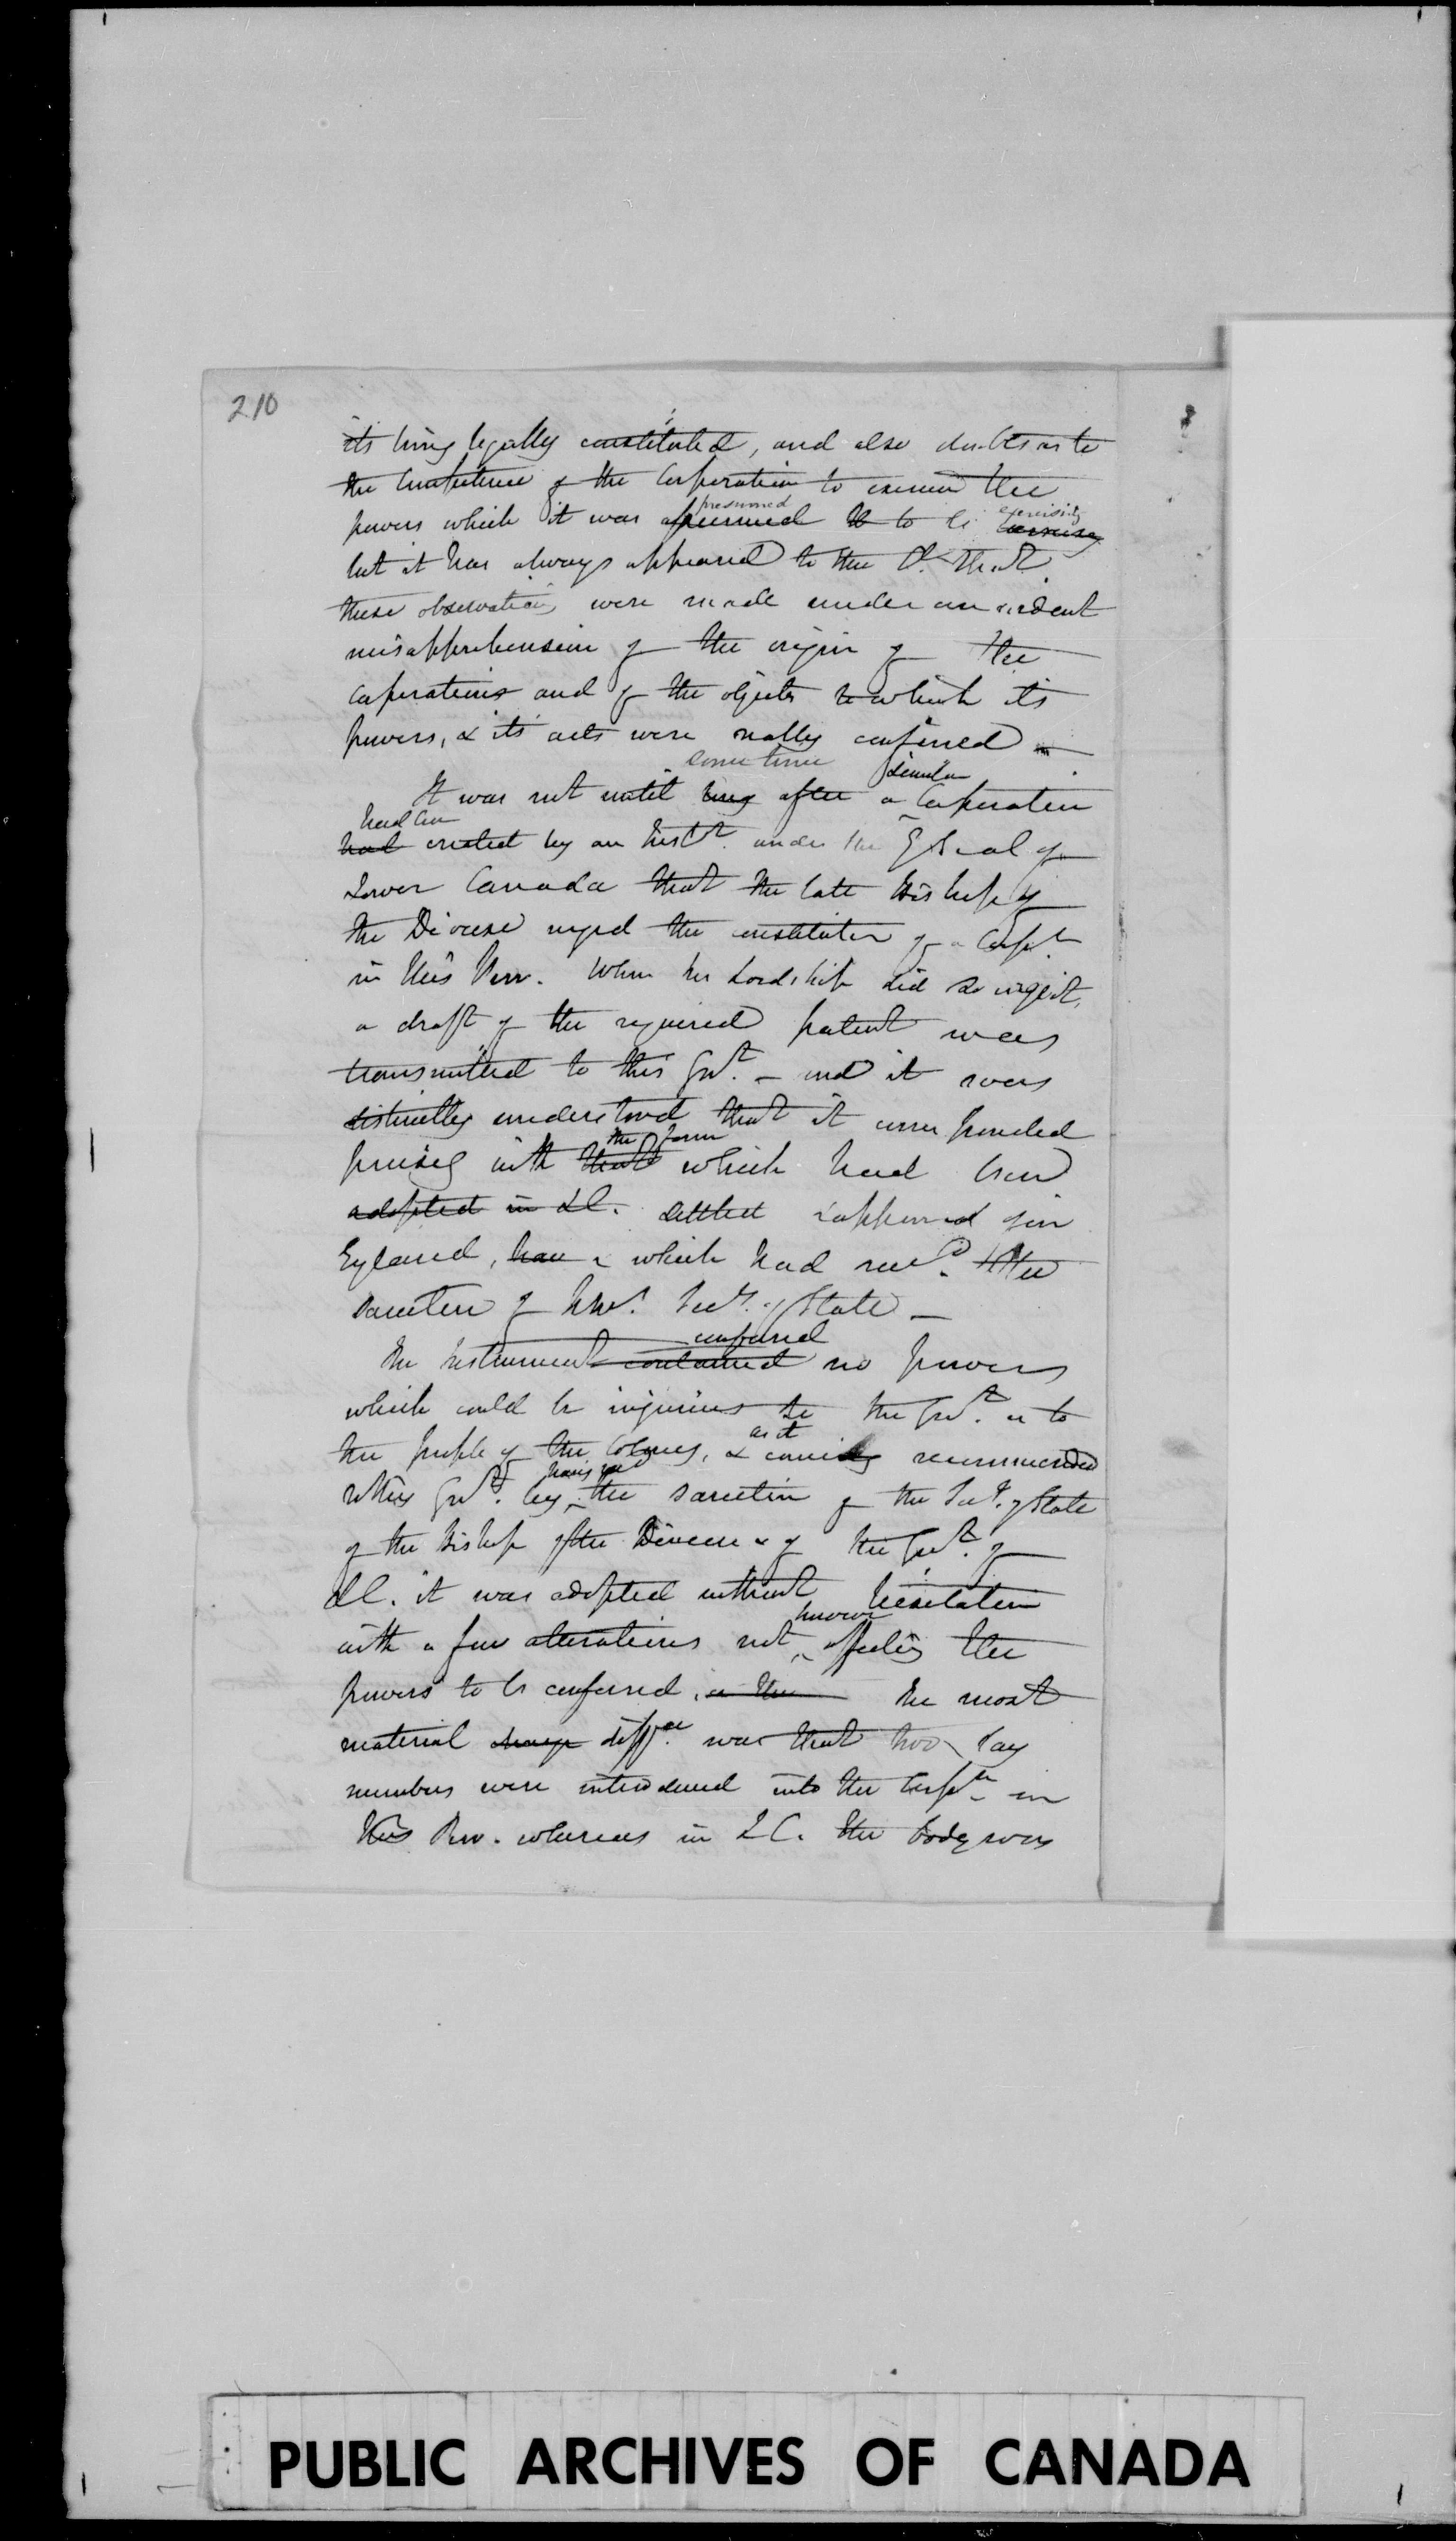 210
its being legally constituted, and also doubts as to
the competence of the Corporation to exercise the
presumed exercising
powers which it was assumed to be exercising
but it has always appeared to the that
these observations were made under an evident
misapprehension of the origin of the
corporations and of the objects to which its
powers, & its acts were really confined
some time similar
It was not until long after a Corporation
had been
had created by an Inst.t under the G Seal of
Lower Canada that the late Bishop of
the Diocese urged the constitution of a Corp.n
in this Prov. When his Lordship did so urge it,
a draft of the required patent was
transmitted to this Gov.t – and it was
distinctly understood that it corresponded
the form
precisely with that which had been
adopted in LC. settled & approved of in
England, & which had rec.d the
sanction of H M.s Sec.y of State –
conferred
The Instrument contained no powers
which could be injurious to the Gov.t or to
as it
the people of the Colonies, & coming recommended
having rec.d
to this Gov.t by the sanction of the Sec.y of State
of the Bishop of the Diocese & of the Gov.t of
LC. it was adopted without hesitation
however
with a few alterations not affecting the
powers to be conferred, or the the most
material change diff.ce was that two lay
members were introduced into the Corp.n in
this Prov. whereas in LC. the body was
PUBLIC ARCHIVES OF CANADA